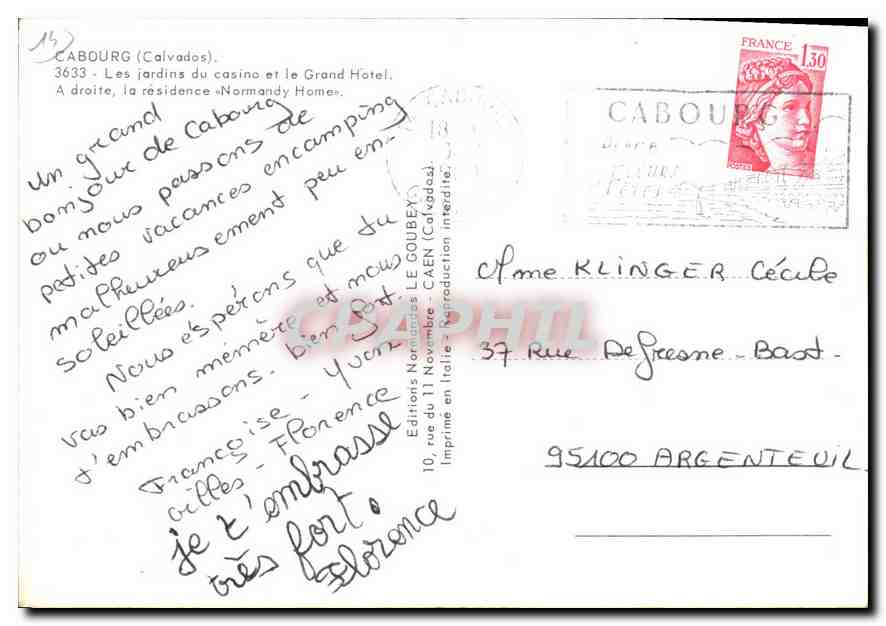 13
CABOURG (Calvados).
3633 - Les jardins du casino et le Grand Hotel.
A droite, la résidence «Normandy Home».
Un grand
bonjour de Cabourg
ou nous passons de
petites vacances en camping
malheureusement peu en-
soleillées.
Nous espérons que tu
vas bien mémère et nous
t'embrassons bien fort.
Françoise - Yvon
Gilles - Florence
je t'embrasse
très fort.
Florence
Editions Normandes LE GOUBEY
10, rue du 11 Novembre - CAEN (Calvados)
Imprimé en Italie - Reproduction interdite.
FRANCE 1,30
POSTES
18
CABOURG
FLEURS
Mme KLINGER Cécile
37 Rue Defresne-Bast-
95100 ARGENTEUIL
CPAPHIL